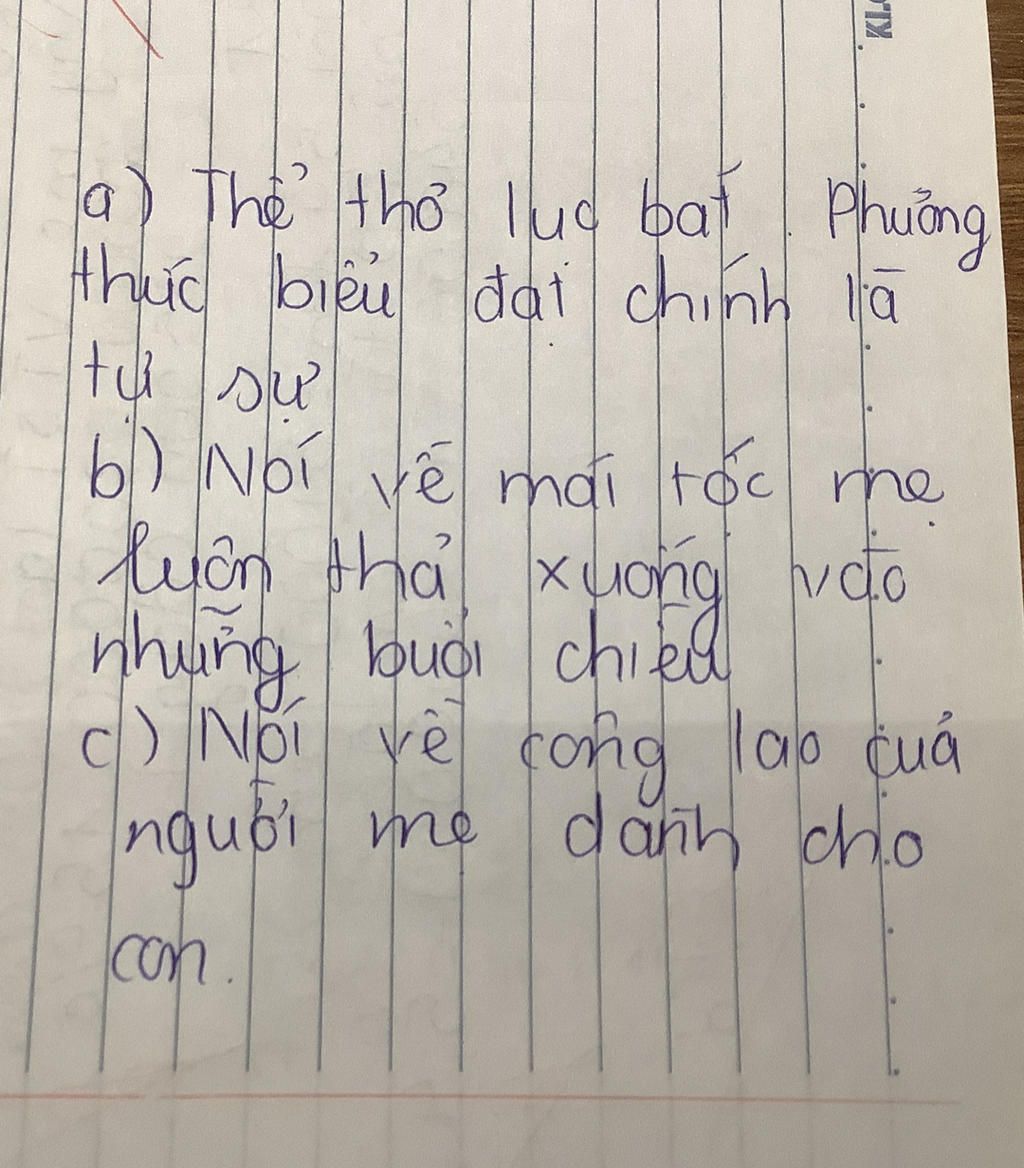 a) Thể thơ lục bát. Phương
thức biểu đạt chính là
tự sự
b) Nói về mái tóc mẹ
luôn thả xuống vào
những buổi chiều
c) Nói về công lao của
người mẹ dành cho
con.